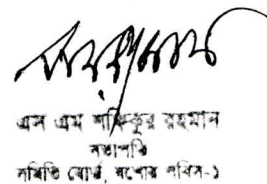 এস এম শফিকুর রহমান
সভাপতি
সমিতি বোর্ড, যশোর পবিস-১